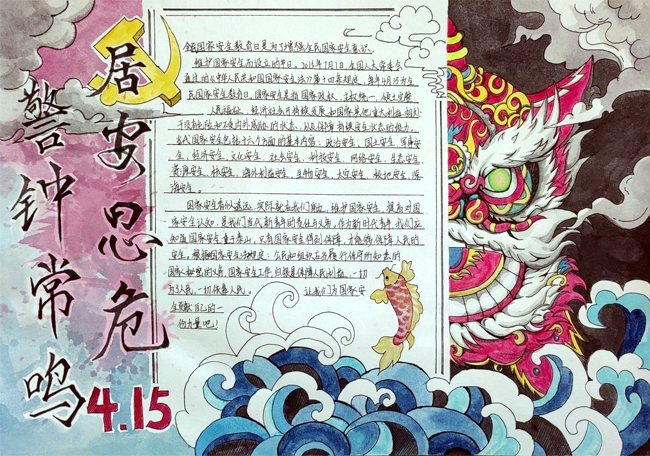 居安思危
警钟常鸣
4.15
全民国家安全教育日是为了增强全民国家安全意识,
维护国家安全而设立的节日。2015年7月1日,全国人大常委会
通过的《中华人民共和国国家安全法》第十四条规定,每年4月15为全
民国家安全教育日。国家安全是指国家政权、主权、统一、领土完整
人民福祉、经济社会可持续发展和国家其他重大利益相对处
于没有危险和不受内外威胁的状态,以及保障持续安全状态的能力。
当代国家安全包括十六个方面的基本内容:政治安全、国土安全、军事安
全、经济安全、文化安全、社会安全、科技安全、网络安全、生态安全、
资源安全、核安全、海外利益安全、生物安全、太空安全、极地安全、深
海安全。
国家安全看似遥远,实际就在我们身边,维护国家安全,提高对国
家安全认知,是我们当代新青年的责任与义务。作为新时代青年,我们应
知道国家安全重于泰山,只有国家安全得到保障,才能够保障人民的
安全。根据国家安全法规定:公民和组织应当履行保守所知悉的
国家秘密的义务,国家安全工作归根结底保障人民利益,一切
为人民、一切依靠人民。 让我们为国家安
全贡献自己的一
份力量吧!